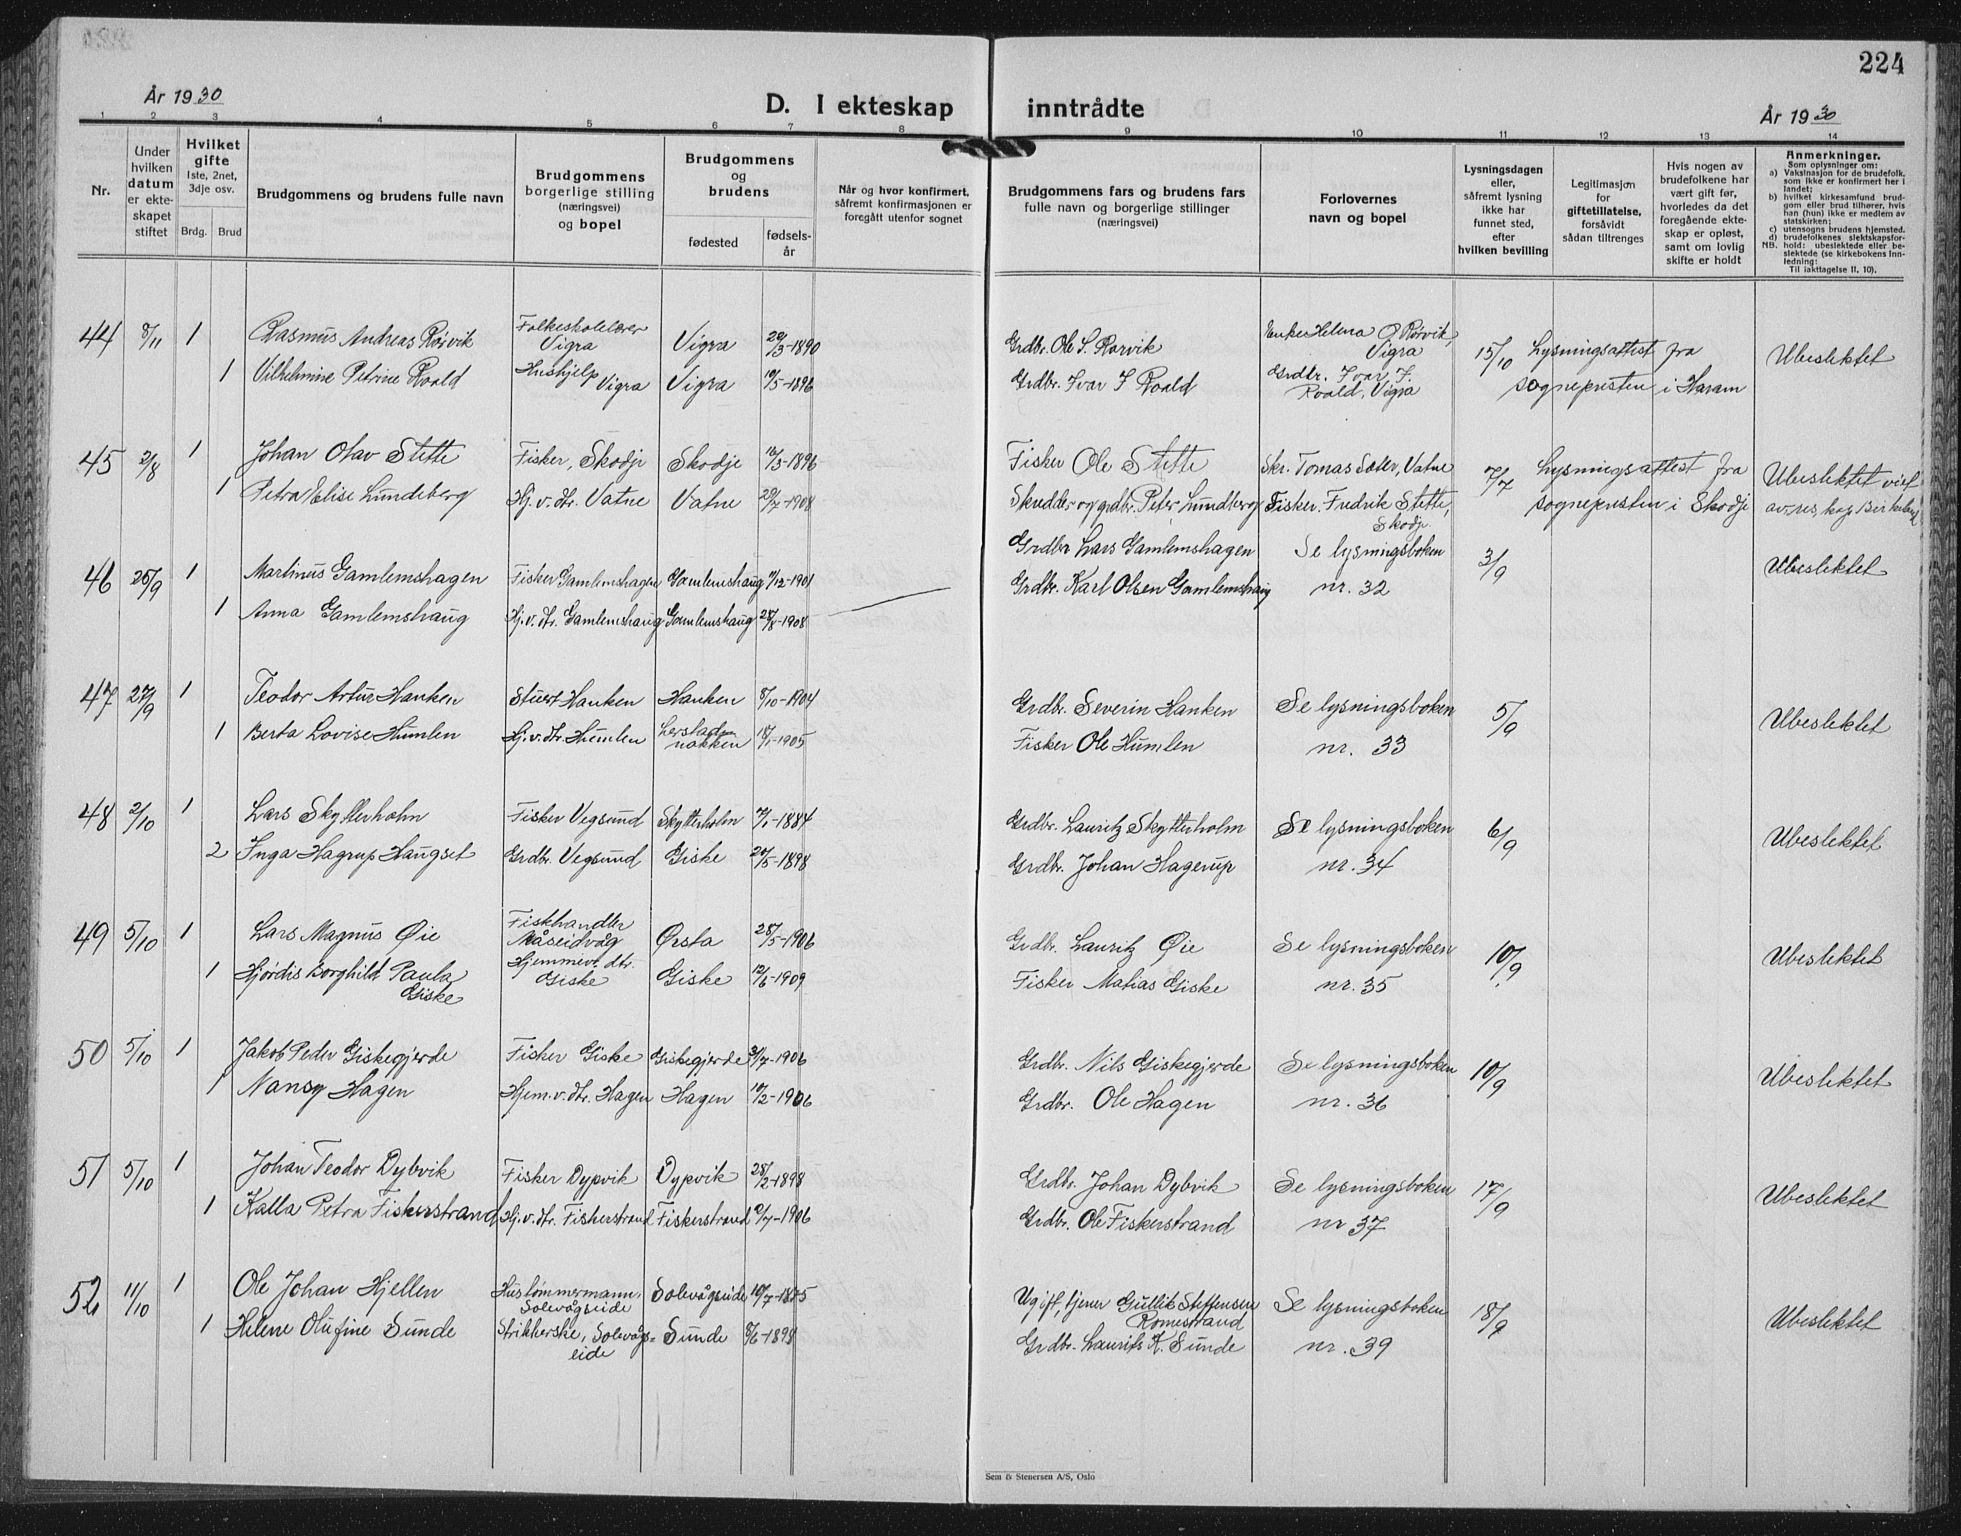 224
År 1930
D. I ekteskap inntrådte
År 1930
1 2 3 4 5 6 7 8 9 10 11 12 13 14
Nr.
Under hvilken datum er ekteskapet stiftet
Hvilket gifte
1ste, 2net, 3dje osv.
Brdg. Brud
Brudgommens og brudens fulle navn
Brudgommens borgerlige stilling (næringsvei) og bopel
Brudgommens og brudens
fødested
fødselsår
Når og hvor konfirmert, såfremt konfirmasjonen er foregått utenfor sognet
Brudgommens fars og brudens fars fulle navn og borgerlige stillinger (næringsvei)
Forlovernes navn og bopel
Lysningsdagen eller, såfremt lysning ikke har funnet sted, efter hvilken bevilling
Legitimasjon for giftetillatelse, forsåvidt sådan tiltrenges
Hvis nogen av brudefolkene har vært gift før, hvorledes da det foregående ekteskap er opløst, samt om lovlig skifte er holdt
Anmerkninger.
Som oplysninger om:
a) Vaksinasjon for de brudefolk, som ikke er konfirmert her i landet;
b) hvilket kirkesamfund brudgom eller brud tilhører, hvis han (hun) ikke er medlem av statskirken;
c) utensogns brudens hjemsted.
d) brudefolkenes slektskapsforhold: ubeslektede eller beslektede (se kirkebokens innledning:
NB. Til iakttagelse II, 10).
44 8/11 1 Rasmus Andreas Rörvik Folkeskolelærer Vigra Vigra 20/3-1890 Grdbr. Ole S. Rørvik Enke Helena O Rørvik, Vigra 15/10 Lysningsattest fra sognepresten i Haram Ubeslektet
1 Vilhelmine Petrine Roald Hushjelp Vigra Vigra 19/5-1896 Grdbr. Ivar I Roald Grdbr. Ivar I. Roald, Vigra
45 2/8 1 Johan Olav Stette Fisker, Skodje Skodje 16/3-1896 Fisker Ole Stette Skr. Tomas Sæter, Vatne 7/7 Lysningsattest fra sognepresten i Skodje Ubeslektet viet av res. kap Birkeland
1 Petra Elise Lundeberg Hj. v. dtr. Vatne Vatne 29/7-1908 Skredder og grdbr. Peter Lundberg Fisker. Fredrik Stette, Skodje
46 25/9 1 Martinus Gamlemshagen Fisker Gamlemshagen Gamlemshaug 11/12-1901 Grdbr Lars Gamlemshagen Se lysningsboken nr. 32 3/9 Ubeslektet
1 Anna Gamlemshaug Hj. v. dtr. Gamlemshaug Gamlemshaug 28/8-1908 Grdbr. Karl Olsen Gamlemshaug
47 27/9 1 Teodor Artur Hanken Stuert Hanken Hanken 8/10-1904 Grdbr. Severin Hanken Se lysningsboken nr. 33 5/9 Ubeslektet
1 Berta Lovise Humlen Hj. v. dtr. Humlen Lerstadnakken 18/1-1905 Fisker Ole Humlen
48 2/10 1 Lars Skytterholm Fisker Vegsund Skytterholm 7/1-1884 Grdbr. Lauritz Skytterholm Se lysningsboken nr. 34 6/9 Ubeslektet
2 Inga Hagrup Haugset Grdbr. Vegsund Giske 20/5-1898 Grdbr. Johan Hagerup
49 5/10 1 Lars Magnus Øie Fiskhandler Måseidvåg Ørsta 28/5-1906 Grdbr. Lauritz Øie Se lysningsboken nr. 35 10/9 Ubeslektet
1 Hjørdis Borghild Paula Giske Hjemmev. dtr. Giske Giske 12/6-1909 Fisker Matias Giske
50 5/10 1 Jakob Peder Giskegjerde Fisker Giske Giskegjerde 31/7-1906 Grdbr. Nils Giskegjerde Se lysningsboken nr. 36 10/9 Ubeslektet
1 Nansy Hagen Hjem. v. dtr. Hagen Hagen 10/2-1906 Grdbr. Ole Hagen
51 5/10 1 Johan Teodor Dybvik Fisker Dypvik Dypvik 28/2-1898 Grdbr. Johan Dybvik Se lysningsboken nr 37 17/9 Ubeslektet
1 Kalla Petra Fiskerstrand Hj. v. dtr. Fiskerstrand Fiskerstrand 9/7-1906 Grdbr. Ole Fiskerstrand
52 11/10 1 Ole Johan Hjellen Hustømmermann, Solevågseide Solevågseide 10/7-1885 Ugift, tjener Gullik Steffensen Romestrand Se lysningsboken nr. 39 18/9 Ubeslektet
1 Helene Olufine Sunde Strikkerske, Solevågseide Sunde 8/6-1898 Grdbr. Laurits K. Sunde
Sem & Stenersen A/S, Oslo